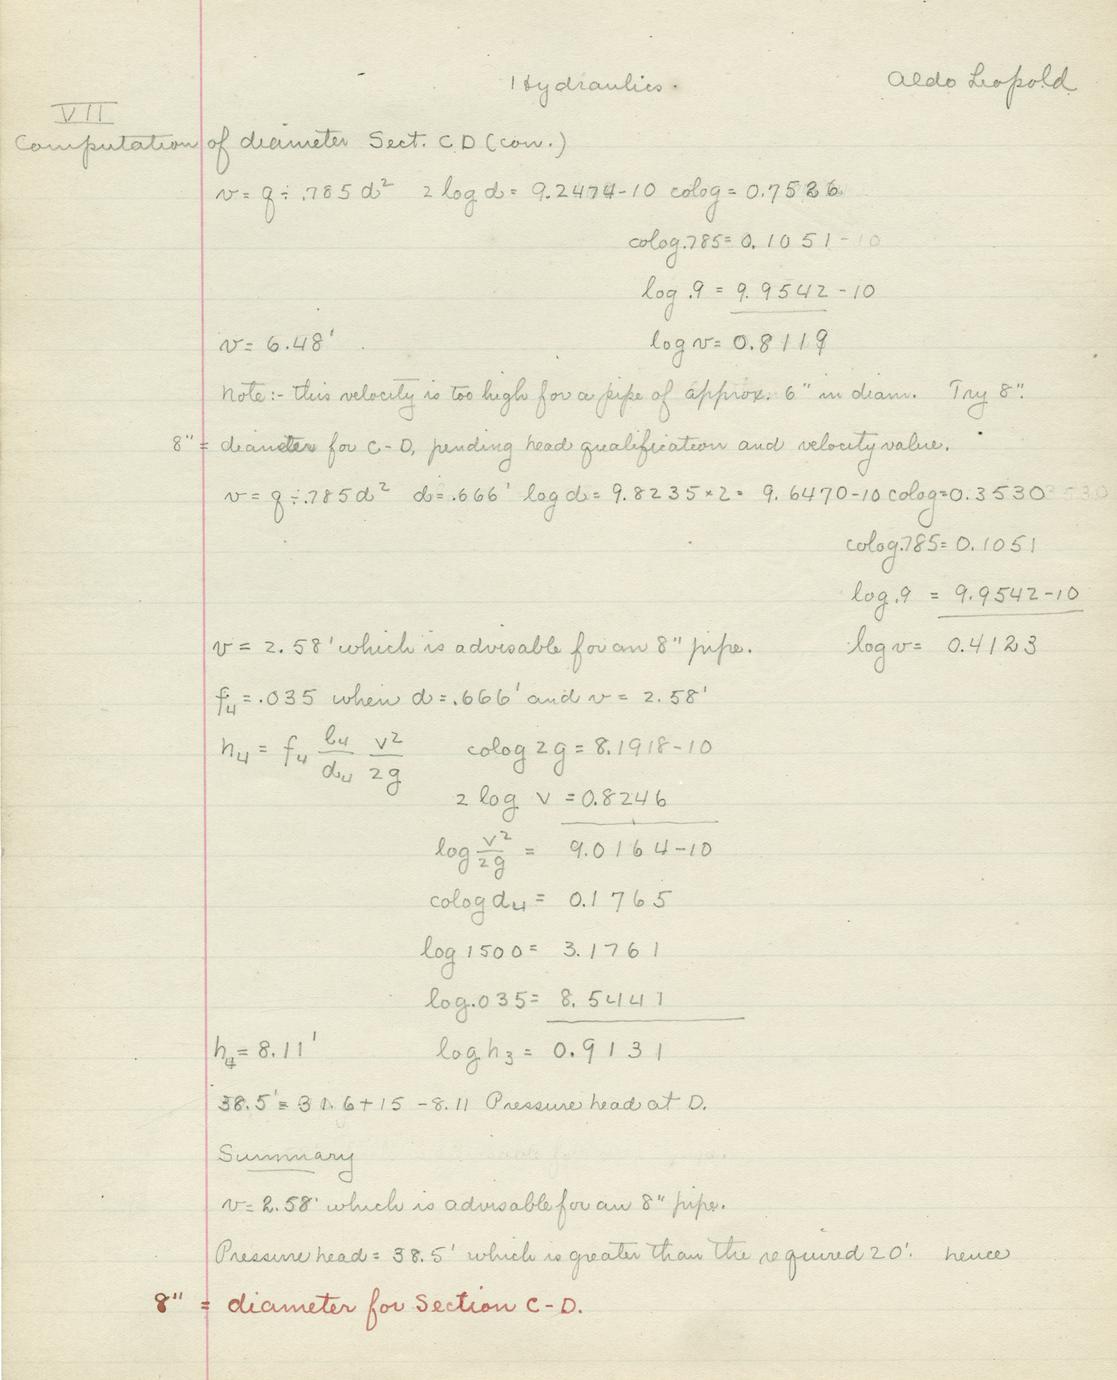 Hydraulics. Aldo Leopold
VII
Computation of diameter Sect. C D (con.)
v = q ÷ .785 d² 2 log d = 9.2474-10 colog = 0.7526
colog .785 = 0.1051-10
log .9 = 9.9542-10
v = 6.48' log v = 0.8119
Note:- this velocity is too high for a pipe of approx. 6" in diam. Try 8".
8" = diameter for C-D, pending head qualification and velocity value.
v = q ÷ .785 d² d = .666' log d = 9.8235 × 2 = 9.6470-10 colog = 0.3530
colog .785 = 0.1051
log .9 = 9.9542-10
v = 2.58' which is advisable for an 8" pipe. log v = 0.4123
f₄ = .035 when d = .666' and v = 2.58'
h₄ = f₄ l₄/d₄ v²/2g colog 2g = 8.1918-10
2 log v = 0.8246
log v²/2g = 9.0164-10
colog d₄ = 0.1765
log 1500 = 3.1761
log .035 = 8.5441
h₄ = 8.11' log h₃ = 0.9131
38.5' = 31.6 + 15 - 8.11 Pressure head at D.
Summary
v = 2.58' which is advisable for an 8" pipe.
Pressure head = 38.5' which is greater than the required 20'. hence
8" = diameter for Section C-D.